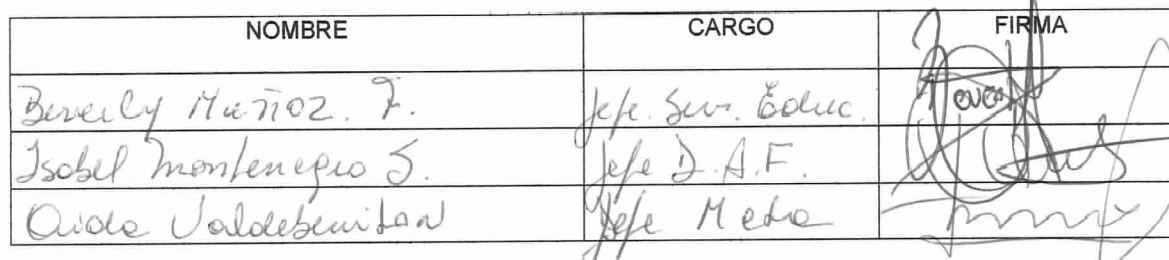 NOMBRE CARGO FIRMA
Beverly Muñoz. F. Jefe. Serv. Educ.
Isabel Montenegro S. Jefe D.A.F.
Aida Jefe